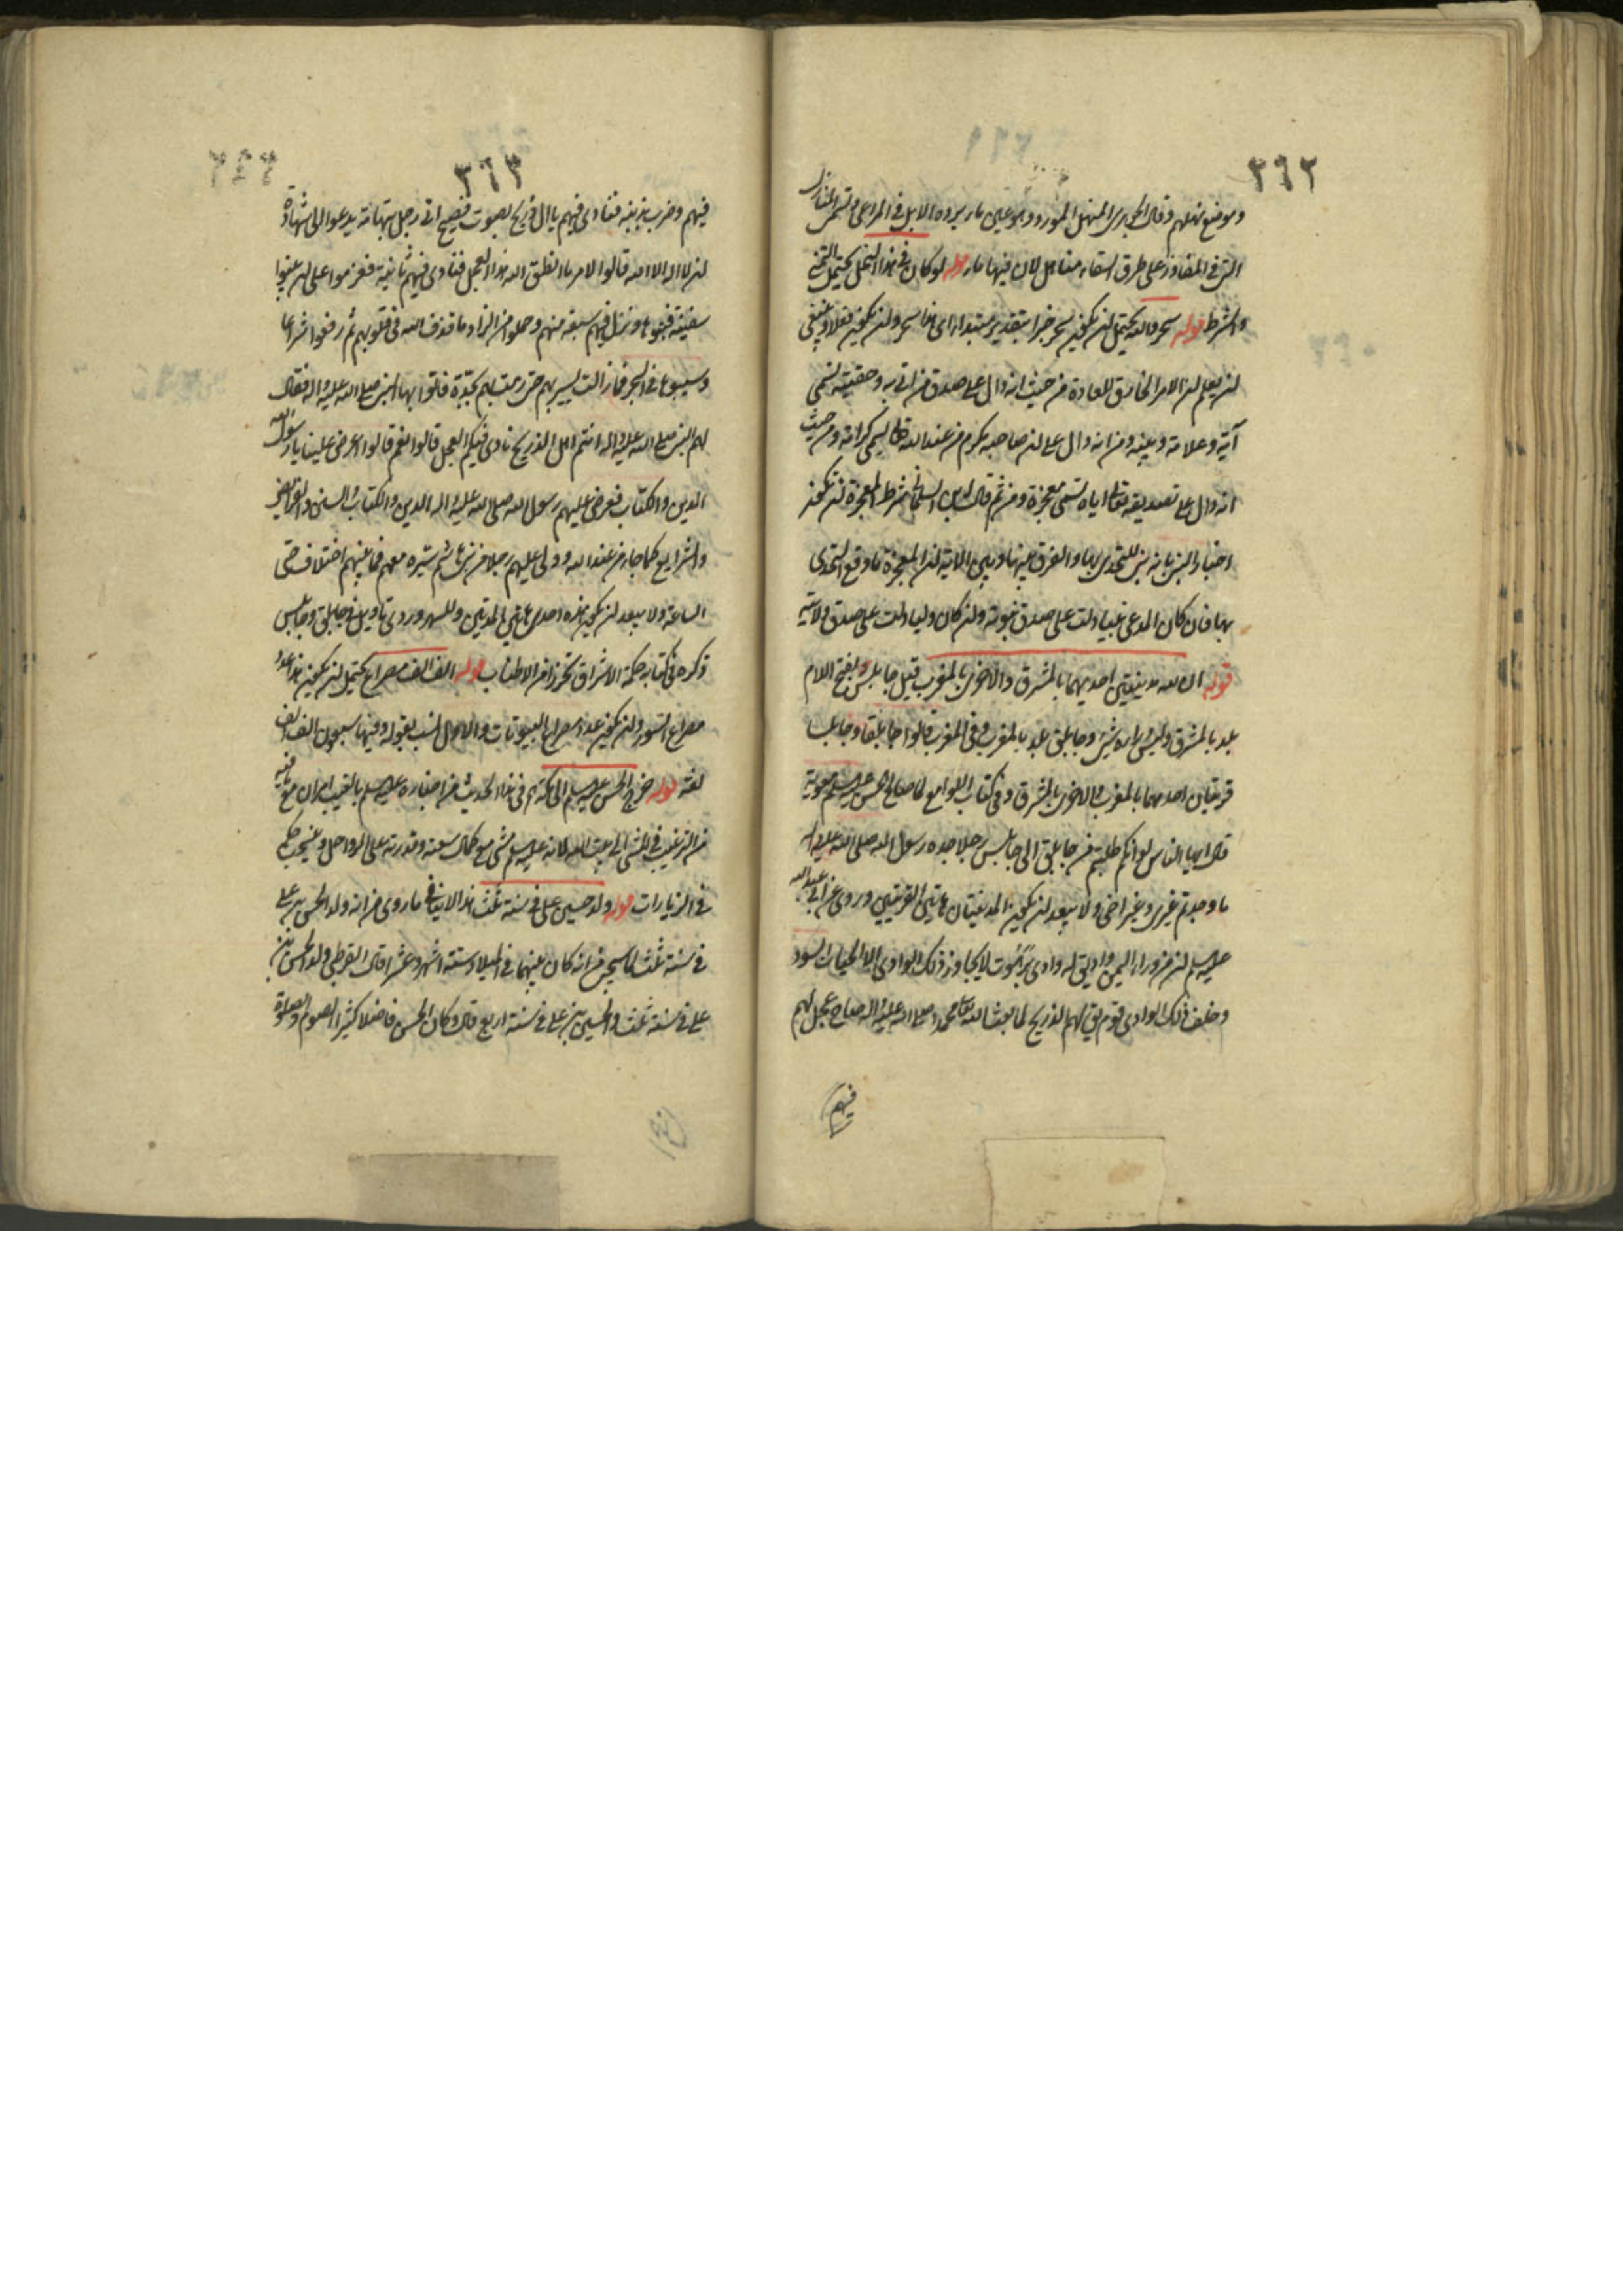 ٣٦٢
وموضع نهلهم وقال الجوهري المنهل المورد وهو عين ماء يرده الابل في المراعي وتسمى المنازل
التي في المفاوز على طرق السفار مناهل لان فيها ماء قوله لو كان في هذا النخل يحتمل التمني
والشرط قوله سحر والله يحتمل ان يكون سحر خبرا بتقدير مبتدا اي هذا سحر وان يكون فعلا وينبغي
ان يعلم ان الامر الخارق للعادة من حيث انه دال على صدق من اتى به وحقيته تسمى
آية وعلامة وبينة ومن انه دال على ان صاحبه مكرم من عند الله تعالى يسمى كرامة ومن حيث
انه دال على تصديقه تعالى اياه تسمى معجزة ومن ثم قال شرط المعجزة ان تكون
اخبار النبي بانه نبي للتحدي بها والفرق بينها وبين الاية ان المعجزة ما وقع التحدي
بها فان كان المدعي نبيا دلت على صدق نبوته وان كان وليا دلت على صدق ولايته
قوله ان لله مدينتين احديهما بالمشرق والاخرى بالمغرب قيل جابلس بفتح اللام
بلد بالمشرق وليس وراءه شيئ وجابلق بلد بالمغرب وفي المغرب قالوا جابلقا وجابلسا
قريتان احديهما بالمغرب والاخرى بالمشرق وفي كتاب اللوامع لما صالح الحسن عليه السلم معوية
قال ايها الناس لو انكم طلبتم من جابلق الى جابلس رجلا جده رسول الله صلى الله عليه واله
ما وجدتم غيري وغير اخي ولا يبعد ان يكون المدينتان هاتين القريتين وروى عن ابي عبد الله
عليه السلم ان من وراء اليمن واديا يق له وادي برهوت لا يجاوز ذلك الوادي الا الحيات السود
وخلف ذلك الوادي قوم يق لهم الذريح لما بعث الله تعالى محمدا صلى الله عليه واله صاح عجل لهم
فيهم
٣٦٣
فيهم وضرب بذنبه فنادى فيهم يا ال ذريح بصوت فصيح اتى رجل بتهامة يدعو الى شهادة
ان لا اله الا الله قالوا لامر ما انطلق الله هذا العجل فنادى فيهم ثانية فعزموا على ان يبنوا
سفينة فبنوها ونزل فيهم سبعة منهم وحملوا من الزاد ما قذف الله في قلوبهم ثم رفعوا شراعا
وسيبوها في البحر فما زالت تسير بهم حتى رمت بهم بجدة فاتوا بها النبي صلى الله عليه واله فقال
لهم النبي صلى الله عليه واله انتم اهل الذريح نادى فيكم العجل قالوا نعم قالوا اعرض علينا يا رسول الله
الدين والكتاب فعرض عليهم رسول الله صلى الله عليه واله الدين والكتاب والسنن والفرائض
والشرايع كما جاء من عند الله وولى عليهم رجلا من بني هاشم سيره معهم فما بينهم اختلاف حتى
الساعة ولا يبعد ان يكون هذه احدى هاتين المدينتين وللسهروردي تاويل في جابلق وجابلس
ذكره في كتابه حكمة الاشراق تحرزا من الاطناب قوله الف الف مصراع يحتمل ان يكون هذا عدد
مصراع السور وان يكون عدد مصراع البيوتات والاول انسب بقوله وفيها سبعون الف الف
لغة قوله خرج الحسن عليه السلم الى مكة اه في هذا الحديث من اخباره عليه السلم بالغيب امران مع ما فيه
من الترغيب في المشي الى بيت الله لانه عليه السلم مشى مع كمال سعته وقدرته على الرواحل وينسحب حكم
في الزيارات قوله ولد حسين على في سنة ثلث هذا لا ينافي ما روى من انه ولد الحسن بن علي
في سنة ثلث لما سيجيء من انه كان بينهما في الميلاد ستة اشهر وعشرا قال القرطبي ولد الحسن بن
علي في سنة ثلث والحسين بن علي في سنة اربع قال وكان الحسن فاضلا كثير الصوم والصلوة